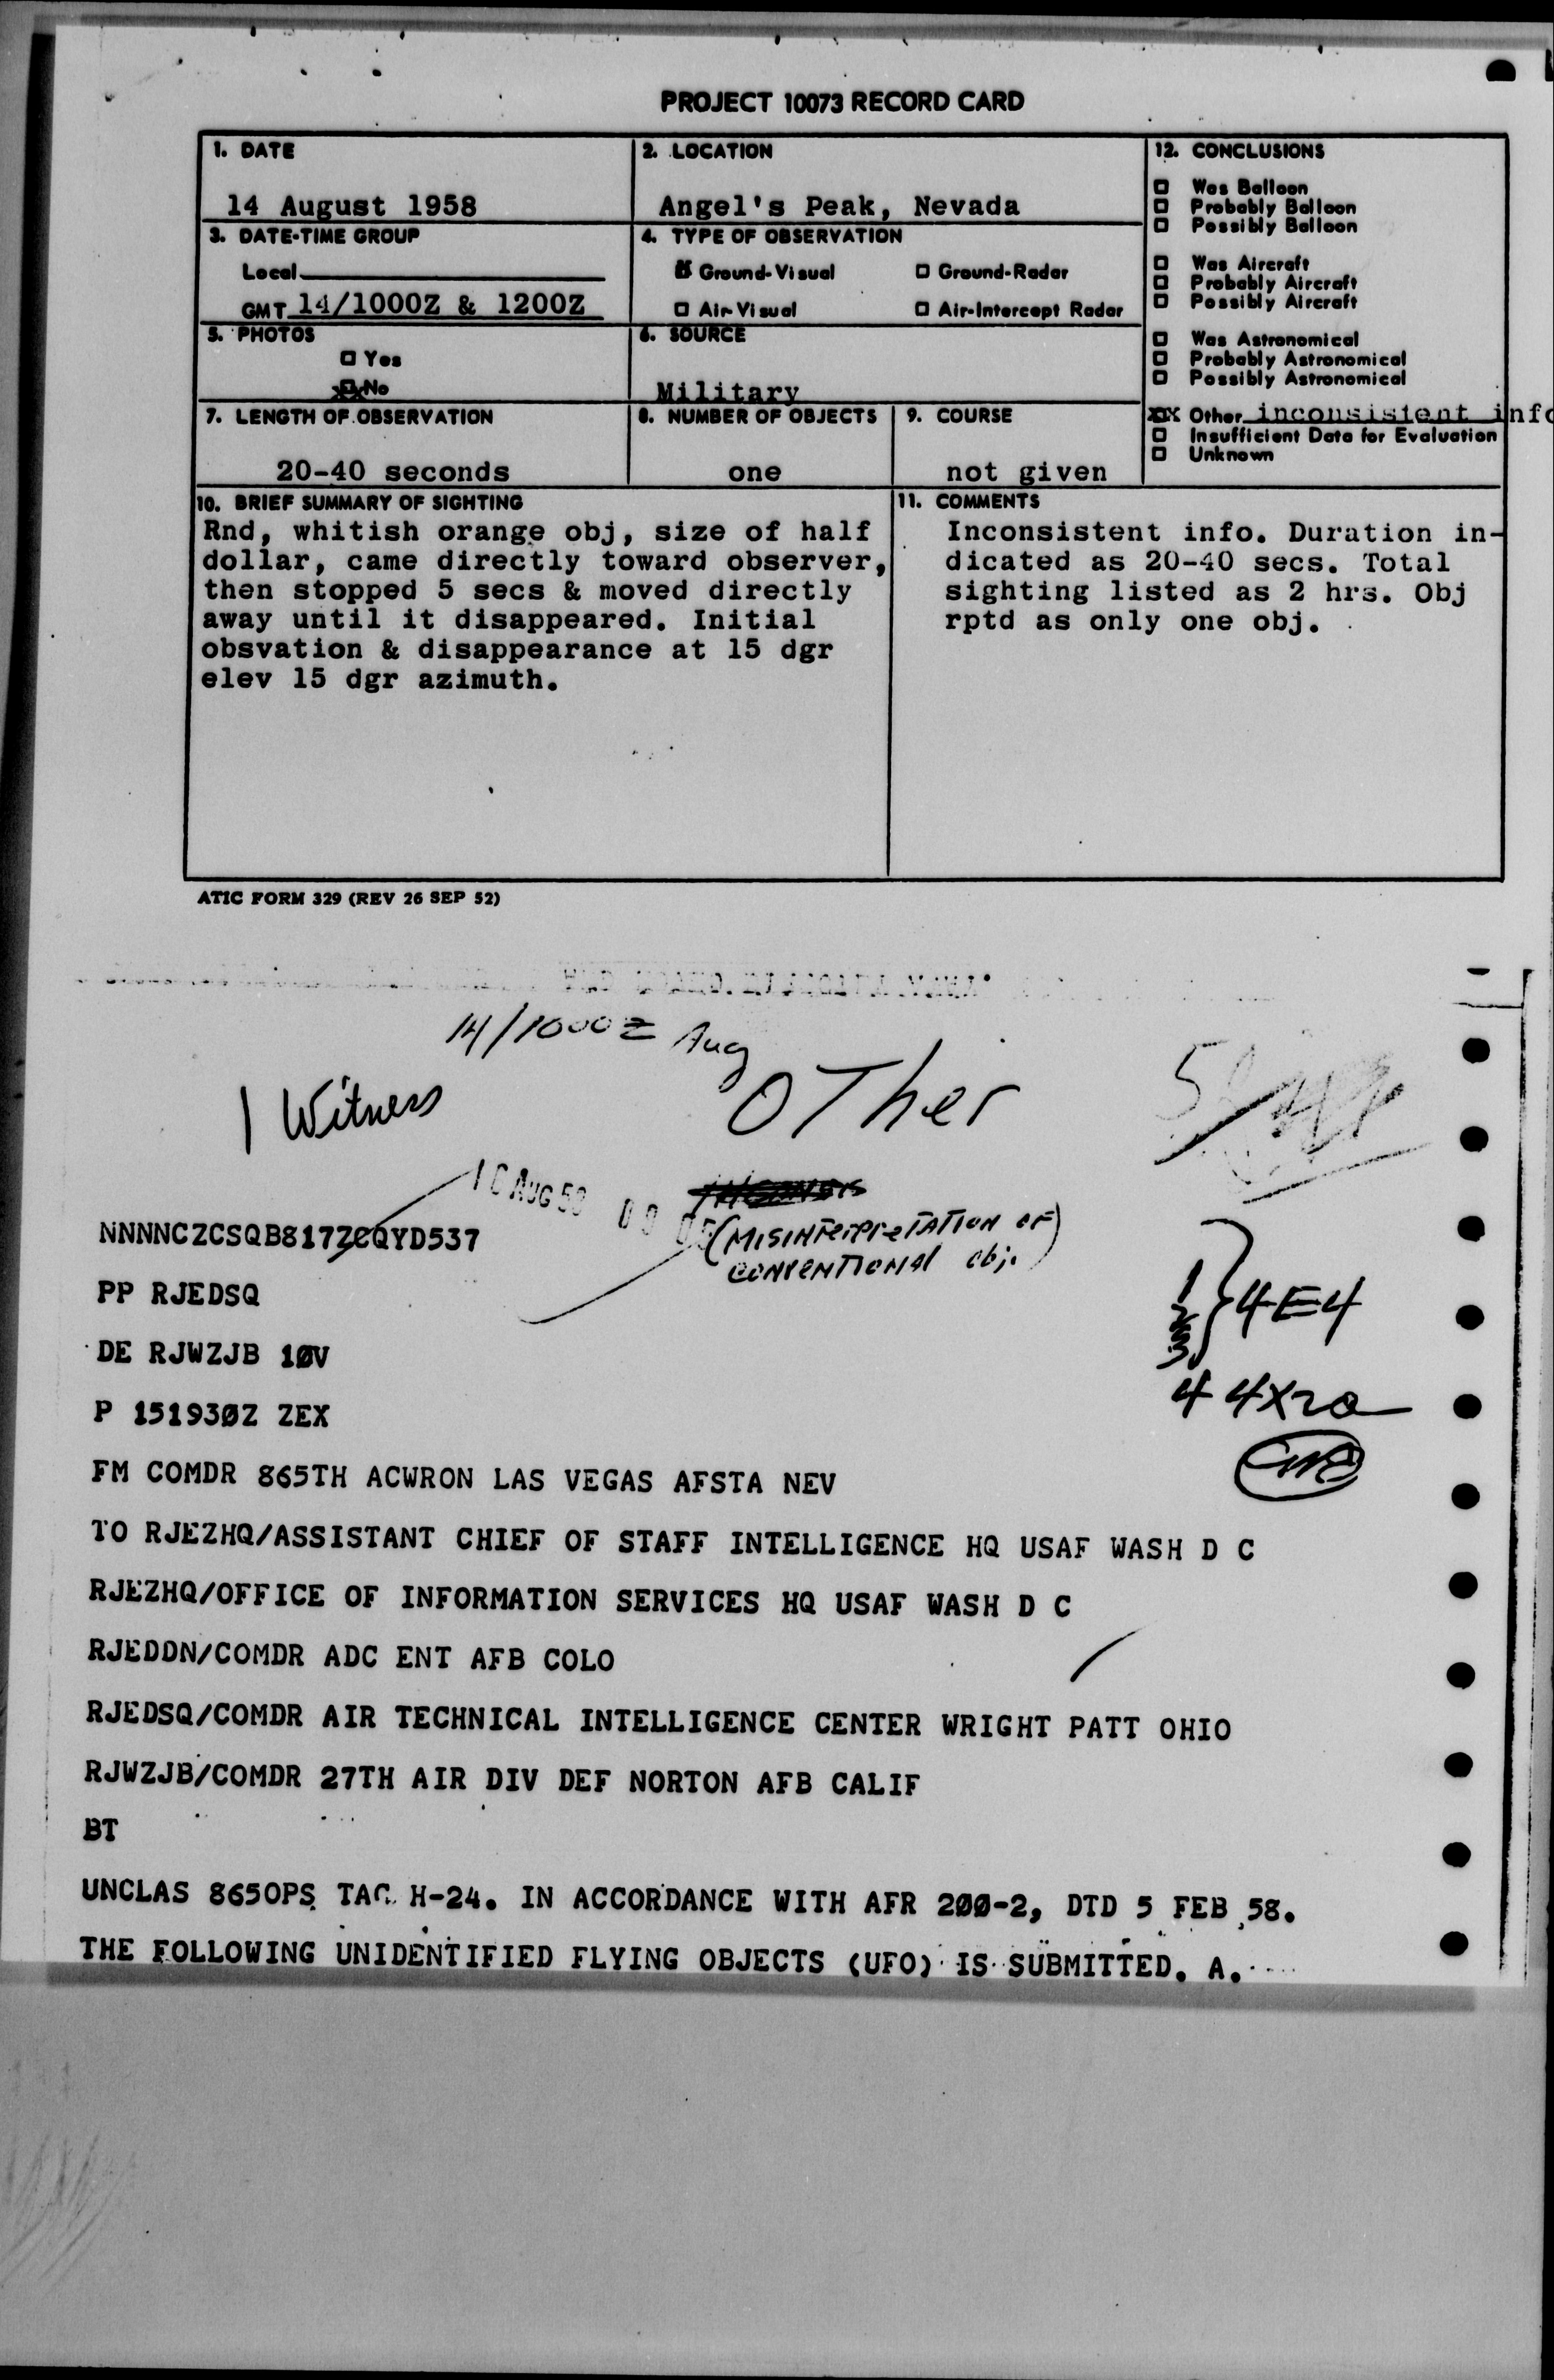 PROJECT 10073 RECORD CARD
1. DATE
14 August 1958
2. LOCATION
Angel's Peak, Nevada
12. CONCLUSIONS
Was Balloon
Probably Balloon
Possibly Balloon
Was Aircraft
Probably Aircraft
Possibly Aircraft
Was Astronomical
Probably Astronomical
Possibly Astronomical
Other inconsistent info
Insufficient Data for Evaluation
Unknown
3. DATE-TIME GROUP
Local
GMT 14/1000Z & 1200Z
4. TYPE OF OBSERVATION
Ground-Visual
Ground-Radar
Air-Visual
Air-Intercept Radar
5. PHOTOS
Yes
No
6. SOURCE
Military
7. LENGTH OF OBSERVATION
20-40 seconds
8. NUMBER OF OBJECTS
one
9. COURSE
not given
10. BRIEF SUMMARY OF SIGHTING
Rnd, whitish orange obj, size of half
dollar, came directly toward observer,
then stopped 5 secs & moved directly
away until it disappeared. Initial
obsvation & disappearance at 15 dgr
elev 15 dgr azimuth.
11. COMMENTS
Inconsistent info. Duration in-
dicated as 20-40 secs. Total
sighting listed as 2 hrs. Obj
rptd as only one obj.
ATIC FORM 329 (REV 26 SEP 52)
14/1000Z Aug
1 Witness
OTher
AUG 58
(MISINTERPreTATION OF
CONVENTIONAl obj.)
NNNNCZCSQB817ZCQYD537
PP RJEDSQ
DE RJWZJB 10V
P 151930Z ZEX
1
2
3
} 4E4
4 4X20
FM COMDR 865TH ACWRON LAS VEGAS AFSTA NEV
TO RJEZHQ/ASSISTANT CHIEF OF STAFF INTELLIGENCE HQ USAF WASH D C
RJEZHQ/OFFICE OF INFORMATION SERVICES HQ USAF WASH D C
RJEDDN/COMDR ADC ENT AFB COLO
RJEDSQ/COMDR AIR TECHNICAL INTELLIGENCE CENTER WRIGHT PATT OHIO
RJWZJB/COMDR 27TH AIR DIV DEF NORTON AFB CALIF
BT
UNCLAS 865OPS TAC H-24. IN ACCORDANCE WITH AFR 200-2, DTD 5 FEB 58.
THE FOLLOWING UNIDENTIFIED FLYING OBJECTS (UFO) IS SUBMITTED. A.